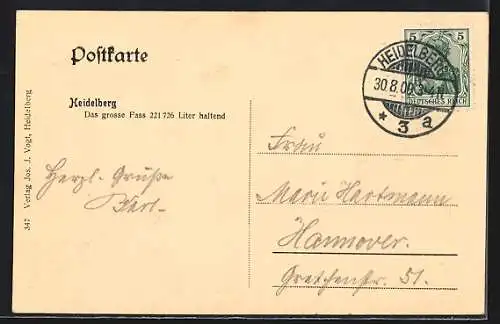 Postkarte
Heidelberg
Das grosse Fass 221726 Liter haltend
347 Verlag Jos. J. Vogt, Heidelberg
Herzl. Grüße
Karl.
5 5
DEUTSCHES REICH
HEIDELBERG
30.8.0
* 3 a
Frau
Marie Hartmann
Hannover.
Gretchenstr. 51.